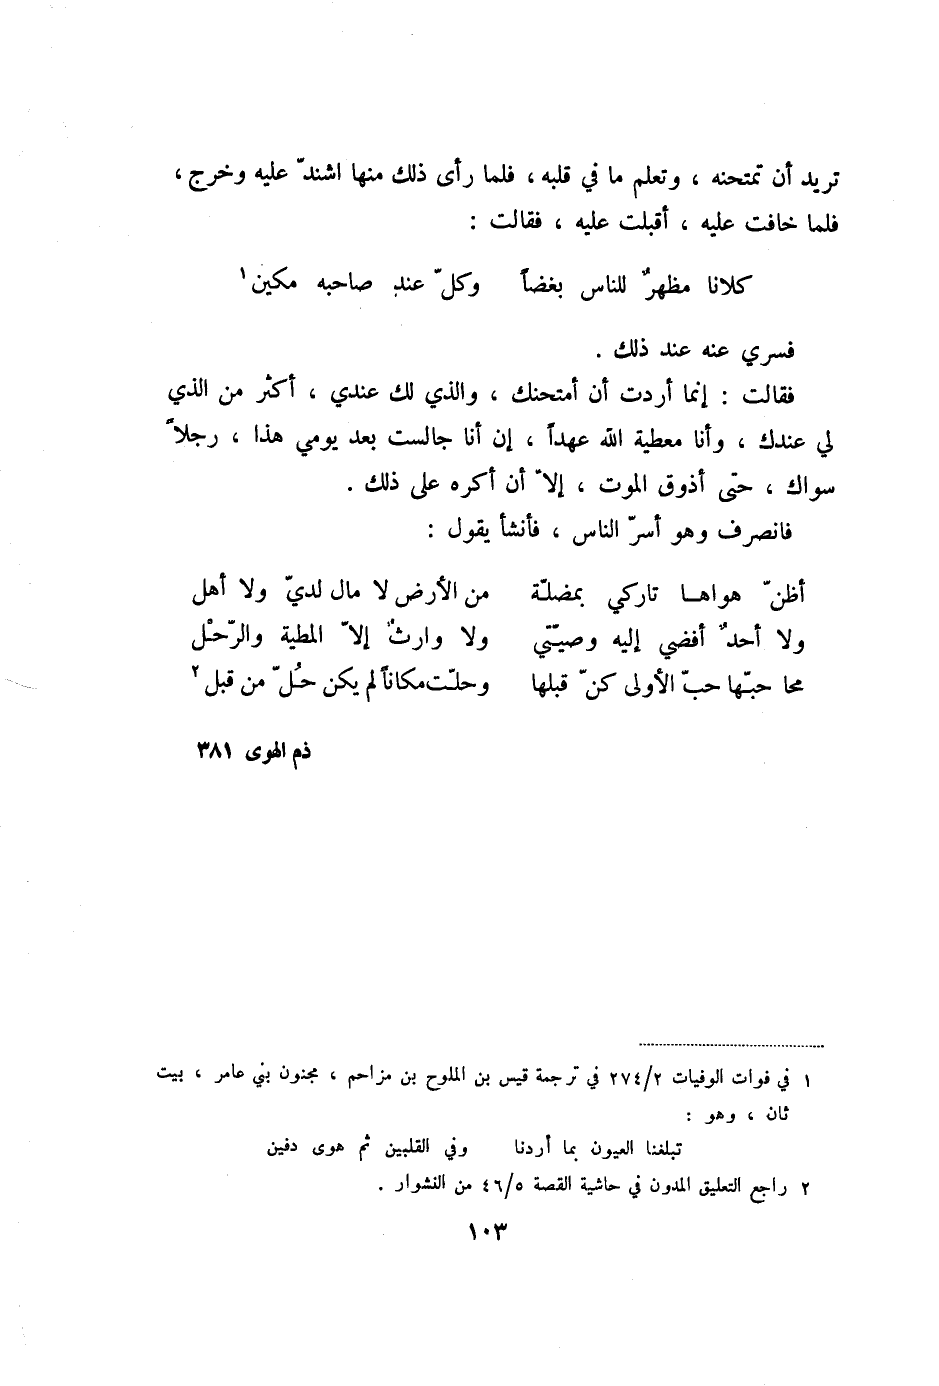 تريد أن تمتحنه ، وتعلم ما في قلبه ، فلما رأى ذلك منها اشتدّ عليه وخرج ،
فلما خافت عليه ، أقبلت عليه ، فقالت :
كلانا مظهرٌ للناس بغضاً وكلّ عند صاحبه مكين١
فسري عنه عند ذلك .
فقالت : إنما أردت أن أمتحنك ، والذي لك عندي ، أكثر من الذي
لي عندك ، وأنا معطية الله عهداً ، إن أنا جالست بعد يومي هذا ، رجلاً
سواك ، حتّى أذوق الموت ، إلاّ أن أكره على ذلك .
فانصرف وهو أسرّ الناس ، فأنشأ يقول :
أظنّ هواهــا تاركي بمضلّة من الأرض لا مال لديّ ولا أهل
ولا أحدٌ أفضي إليه وصيّتي ولا وارثٌ إلاّ المطية والرّحْل
محا حبّها حبّ الأولى كنّ قبلها وحلّت مكاناً لم يكن حُلّ من قبل٢
ذم الهوى ٣٨١
١ في فوات الوفيات ٢٧٤/٢ في ترجمة قيس بن الملوح بن مزاحم ، مجنون بني عامر ، بيت
ثان ، وهو :
تبلغنا العيون بما أردنا وفي القلبين ثم هوى دفين
٢ راجع التعليق المدون في حاشية القصة ٤٦/٥ من النشوار .
١٠٣